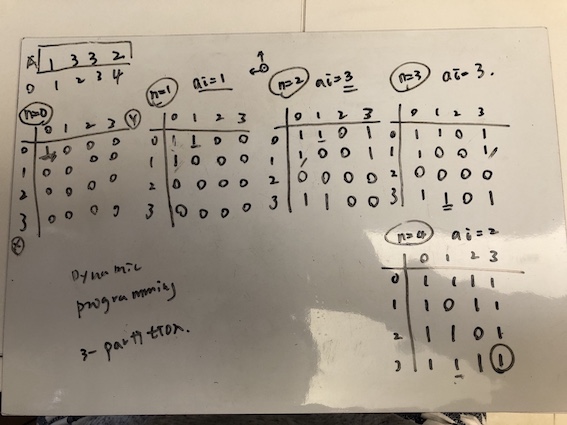 A 1 3 3 2
0 1 2 3 4
n=0
0 1 2 3 Y
0 1 0 0 0
1 0 0 0 0
2 0 0 0 0
3 0 0 0 0
X
n=1 ai=1
0 1 2 3
0 1 1 0 0
1 1 0 0 0
2 0 0 0 0
3 0 0 0 0
n=2 ai=3
0 1 2 3
0 1 1 0 1
1 1 0 0 1
2 0 0 0 0
3 1 1 0 0
n=3 ai=3.
0 1 2 3
0 1 1 0 1
1 1 0 0 1
2 0 0 0 0
3 1 1 0 1
n=4 ai=2
0 1 2 3
0 1 1 1 1
1 1 0 1 1
2 1 1 0 1
3 1 1 1 1
Dynamic
programming
3-partition.